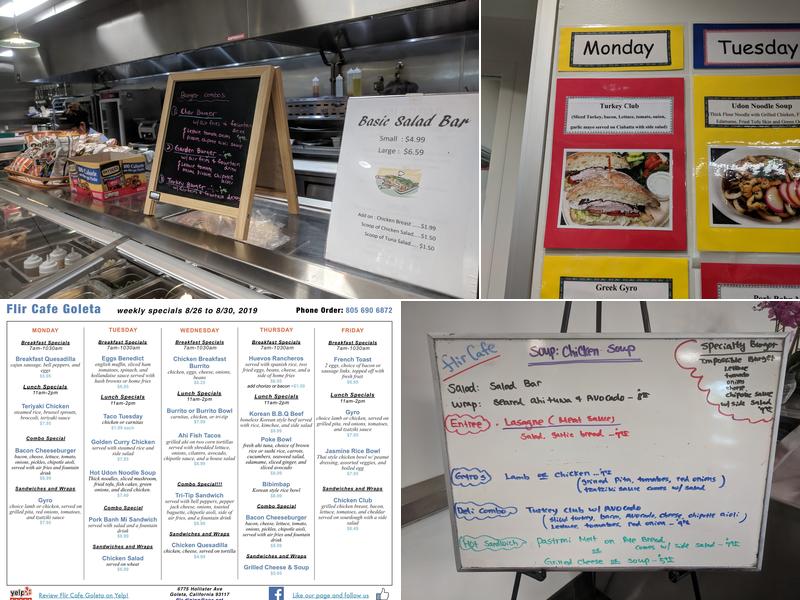 Burger combos
① Char Burger
w/ air fries & fountain
② Garden Burger
w/ air fries & fountain
③ Turkey Burger
100 Calorie
Basic Salad Bar
Small : $4.99
Large : $6.59
Add on : Chicken Breast .....$1.99
Scoop of Chicken Salad....$1.50
Scoop of Tuna Salad....$1.50
Monday
Turkey Club
(Sliced Turkey, bacon, Lettuce, tomato, onion,
garlic mayo served on Ciabatta with side salad)
Greek Gyro
Tuesday
Udon Noodle Soup
Thick Flour Noodle with Grilled Chicken,
Edamame, Fried Tofu Skin and Green
Flir Cafe Goleta
weekly specials 8/26 to 8/30, 2019
Phone Order: 805 690 6872
MONDAY
Breakfast Specials
7am-1030am
Breakfast Quesadilla
Lunch Specials
11am-2pm
Teriyaki Chicken
steamed rice, brussel sprouts,
broccoli, teriyaki sauce
Combo Special
Bacon Cheeseburger
bacon, cheese, lettuce, tomato,
onions, pickles, chipotle aioli,
served with air fried and fountain
drink
Sandwiches and Wraps
Gyro
choice lamb or chicken, served on
grilled pita, red onions, tomatoes,
and tzatziki sauce
TUESDAY
Breakfast Specials
7am-1030am
Eggs Benedict
english muffin, sliced ham
tomatoes, spinach, and
hollandaise sauce served with
hash browns or home fries
Lunch Specials
11am-2pm
Taco Tuesday
chicken or carnitas
Golden Curry Chicken
served with steamed rice and side
salad
Hot Udon Noodle Soup
Thick noodles, sliced mushroom,
fried tofu, fish cakes, green
onions, and diced chicken
Combo Special
Pork Banh Mi Sandwich
served with salad and a fountain
drink
Sandwiches and Wraps
Chicken Salad
served on wheat
WEDNESDAY
Breakfast Specials
7am-1030am
Chicken Breakfast
Burrito
chicken, eggs, cheese, onions,
beans
Lunch Specials
11am-2pm
Burrito or Burrito Bowl
carnitas, chicken, or tri-tip
Ahi Fish Tacos
grilled ahi on two corn tortillas
served with shredded lettuce,
onions, cilantro, avocado,
chipotle sauce, and a house salad
Combo Special!!!
Tri-Tip Sandwich
served with bell peppers, pepper
jack cheese, onions, toasted
baguette, chipotle aioli, side of
air fries, and a fountain drink
Sandwiches and Wraps
Chicken Quesadilla
chicken, cheese, served on tortilla
THURSDAY
Breakfast Specials
7am-1030am
Huevos Rancheros
served with spanish rice, two
fried eggs, beans, cheese, and a
side of home fries
add chorizo or bacon
Lunch Specials
11am-2pm
Korean B.B.Q Beef
boneless Korean style beef served
with rice, kimchee, and side salad
Poke Bowl
fresh ahi tuna, choice of brown
rice or sushi rice, carrots,
cucumbers, seaweed salad,
edamame, sliced ginger, and
sliced avocado
Bibimbap
Korean style rice bowl
Combo Special
Bacon Cheeseburger
bacon, cheese, lettuce, tomato,
onions, pickles, chipotle aioli,
served with air fries and fountain
drink
Sandwiches and Wraps
Grilled Cheese & Soup
FRIDAY
Breakfast Specials
7am-1030am
French Toast
2 eggs, choice of bacon or
sausage links, topped off with
fresh fruit
Lunch Specials
11am-2pm
Gyro
choice lamb or chicken, served on
grilled pita, red onions, tomatoes,
and tzatziki sauce
Jasmine Rice Bowl
Thai style chicken bowl w/ peanut
dressing, assorted veggies, and
boiled egg
Sandwiches and Wraps
Chicken Club
grilled chicken breast, bacon,
lettuce, tomatoes, and cheddar
served on sourdough with a side
salad
yelp
Review Flir Cafe Goleta on Yelp!
6775 Hollister Ave
Goleta, California 93117
Like our page and follow us
Flir Cafe
Soup: Chicken Soup
Specialty Burger
Impossible Burger
Lettuce
tomato
onions
cheese
chipotle sauce
w/ side salad
Salad: Salad Bar
Wrap: Seared Ahi tuna & Avocado
Entree • Lasagne (Meat Sauce)
Salad, Garlic bread
Gyros Lamb or Chicken
(grilled pita, tomatoes, red onions)
tzatziki sauce comes w/ salad
Deli Combo Turkey Club w/ Avocado
(sliced turkey, bacon, Avocado, cheese, chipotle aioli)
Lettuce, tomatoes, red onion
Hot Sandwich Pastrami Melt on Rye Bread
or comes w/ side salad
Grilled Cheese & Soup